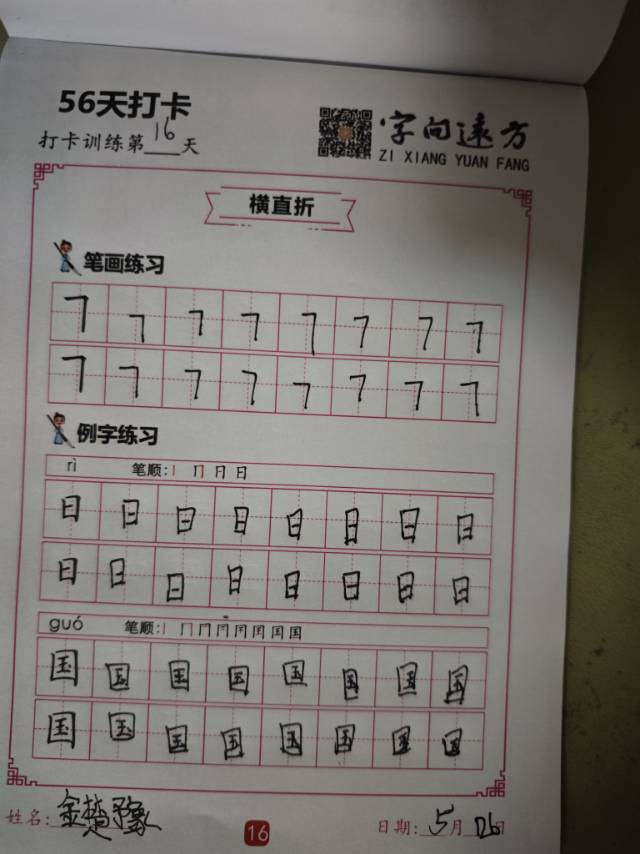 56天打卡
打卡训练第16天
字向远方
ZI XIANG YUAN FANG
横直折
笔画练习
㇕ ㇕ ㇕ ㇕ ㇕ ㇕ ㇕ ㇕
㇕ ㇕ ㇕ ㇕ ㇕ ㇕ ㇕ ㇕
例字练习
rì 笔顺:丨 冂 日 日
日 日 日 日 日 日 日 日
日 日 日 日 日 日 日 日
guó 笔顺:
国 国 国 国 国 国 国 国
国 国 国 国 国 国 国 国
姓名:金楚豫
16
日期:5月26日